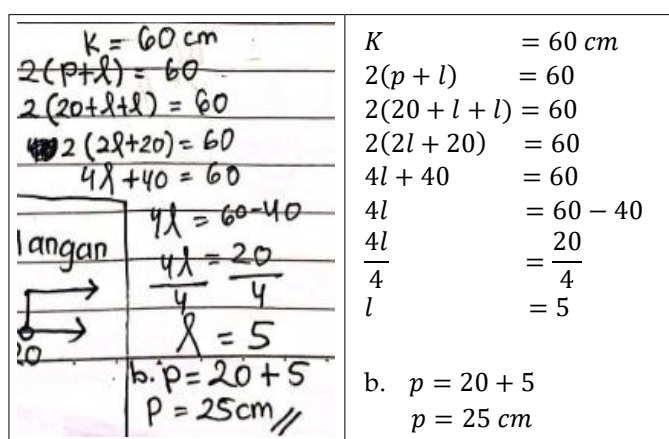 K = 60 cm
2(P+l) = 60
2(20+l+l) = 60
2(2l+20) = 60
4l+40 = 60
4l = 60-40
langan
4l/4 = 20/4
20
l = 5
b. P = 20 + 5
P = 25cm //
K = 60 cm
2(p + l) = 60
2(20 + l + l) = 60
2(2l + 20) = 60
4l + 40 = 60
4l = 60 − 40
4l/4 = 20/4
l = 5
b. p = 20 + 5
p = 25 cm